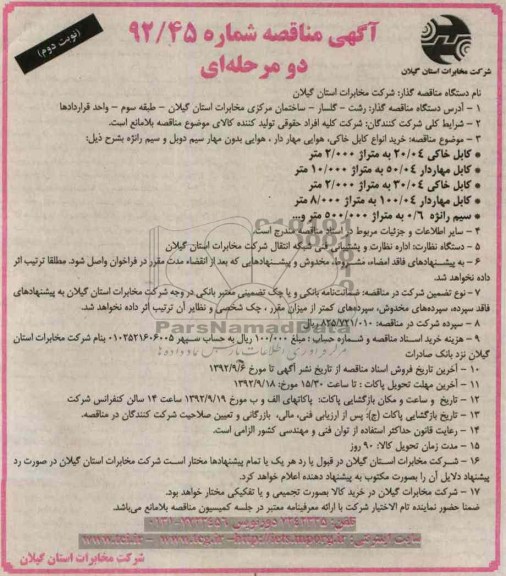 آگهی مناقصه شماره ۹۲/۴۵
دو مرحله‌ای
(نوبت دوم)
شرکت مخابرات استان گیلان
نام دستگاه مناقصه گذار: شرکت مخابرات استان گیلان
۱ - آدرس دستگاه مناقصه گذار: رشت - گلسار - ساختمان مرکزی مخابرات استان گیلان - طبقه سوم - واحد قراردادها
۲ - شرایط کلی شرکت کنندگان: شرکت کلیه افراد حقوقی تولید کننده کالای موضوع مناقصه بلامانع است.
۳ - موضوع مناقصه: خرید انواع کابل خاکی، هوایی مهار دار ، هوایی بدون مهار سیم دوبل و سیم رانژه بشرح ذیل:
● کابل خاکی ۲۰/۰۴ به متراژ ۲/۰۰۰ متر
● کابل مهاردار ۵۰/۰۴ به متراژ ۱۰/۰۰۰ متر
● کابل خاکی ۳۰/۰۴ به متراژ ۲/۰۰۰ متر
● کابل مهاردار ۱۰۰/۰۴ به متراژ ۸/۰۰۰ متر
● سیم رانژه ۰/۶ به متراژ ۵۰۰/۰۰۰ متر و...
۴ - سایر اطلاعات و جزئیات مربوط در اسناد مناقصه مندرج است.
۵ - دستگاه نظارت: اداره نظارت و پشتیبانی فنی شبکه انتقال شرکت مخابرات استان گیلان
۶ - به پیشنهادهای فاقد امضاء، مشروط، مخدوش و پیشنهادهایی که بعد از انقضاء مدت مقرر در فراخوان واصل شود. مطلقا ترتیب اثر
داده نخواهد شد.
۷ - نوع تضمین شرکت در مناقصه: ضمانت‌نامه بانکی و یا چک تضمینی معتبر بانکی در وجه شرکت مخابرات استان گیلان به پیشنهادهای
فاقد سپرده، سپرده‌های مخدوش، سپرده‌های کمتر از میزان مقرر ، چک شخصی و نظایر آن ترتیب اثر داده نخواهد شد.
۸ - سپرده شرکت در مناقصه: ۸۲۵/۷۲۱/۰۱۰ ریال
۹ - هزینه خرید اسناد مناقصه و شماره حساب : مبلغ ۱۰۰/۰۰۰ ریال به حساب سپهر ۰۱۰۲۵۲۱۶۰۶۰۰۵ بنام شرکت مخابرات استان
گیلان نزد بانک صادرات
۱۰ - آخرین تاریخ فروش اسناد مناقصه از تاریخ نشر آگهی تا مورخ ۱۳۹۲/۹/۶
۱۱ - آخرین مهلت تحویل پاکات : تا ساعت ۱۵/۳۰ مورخ: ۱۳۹۲/۹/۱۸
۱۲ - تاریخ و ساعت و مکان بازگشایی پاکات: پاکاتهای الف و ب مورخ ۱۳۹۲/۹/۱۹ ساعت ۱۴ سالن کنفرانس شرکت
۱۳ - تاریخ بازگشایی پاکات (ج): پس از ارزیابی فنی، مالی، بازرگانی و تعیین صلاحیت شرکت کنندگان در مناقصه.
۱۴ - رعایت قانون حداکثر استفاده از توان فنی و مهندسی کشور الزامی است.
۱۵ - مدت زمان تحویل کالا: ۹۰ روز
۱۶ - شرکت مخابرات استان گیلان در قبول یا رد هر یک یا تمام پیشنهادها مختار است شرکت مخابرات استان گیلان در صورت رد
پیشنهاد دلایل آن را بصورت مکتوب به پیشنهاد دهنده اعلام خواهد کرد.
۱۷ - شرکت مخابرات گیلان در خرید کالا بصورت تجمیعی و یا تفکیکی مختار خواهد بود.
ضمنا حضور نماینده تام الاختیار شرکت با ارائه معرفینامه معتبر در جلسه کمیسیون مناقصه بلامانع می‌باشد.
شرکت مخابرات استان گیلان
ParsNamadData